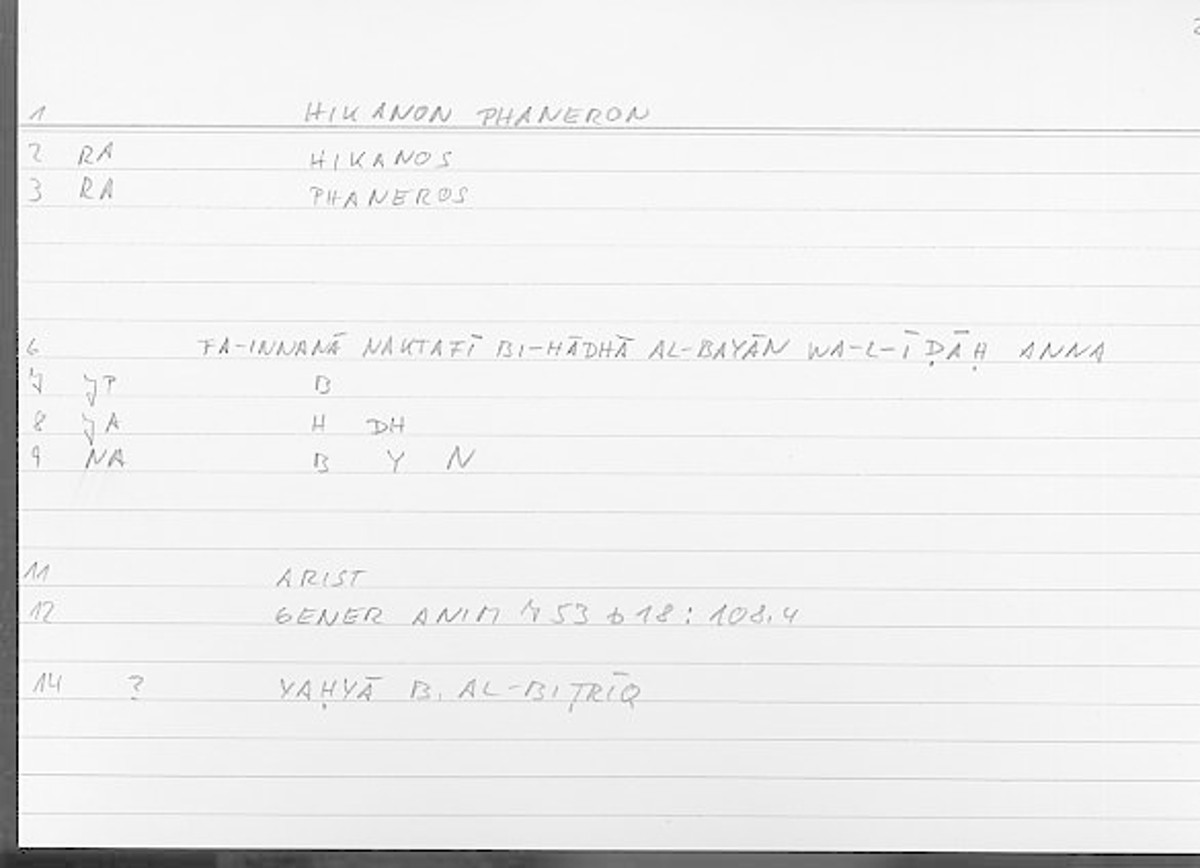 1 HIKANON PHANERON
2 RA HIKANOS
3 RA PHANEROS
6 FA-INNANĀ NAKTAFĪ BI-HĀDHĀ AL-BAYĀN WA-L-ĪḌĀḤ ANNA
7 JP B
8 JA H DH
9 NA B Y N
11 ARIST
12 GENER ANIM 753 b 18 : 108.4
14 ? YAḤYĀ B. AL-BIṬRĪQ